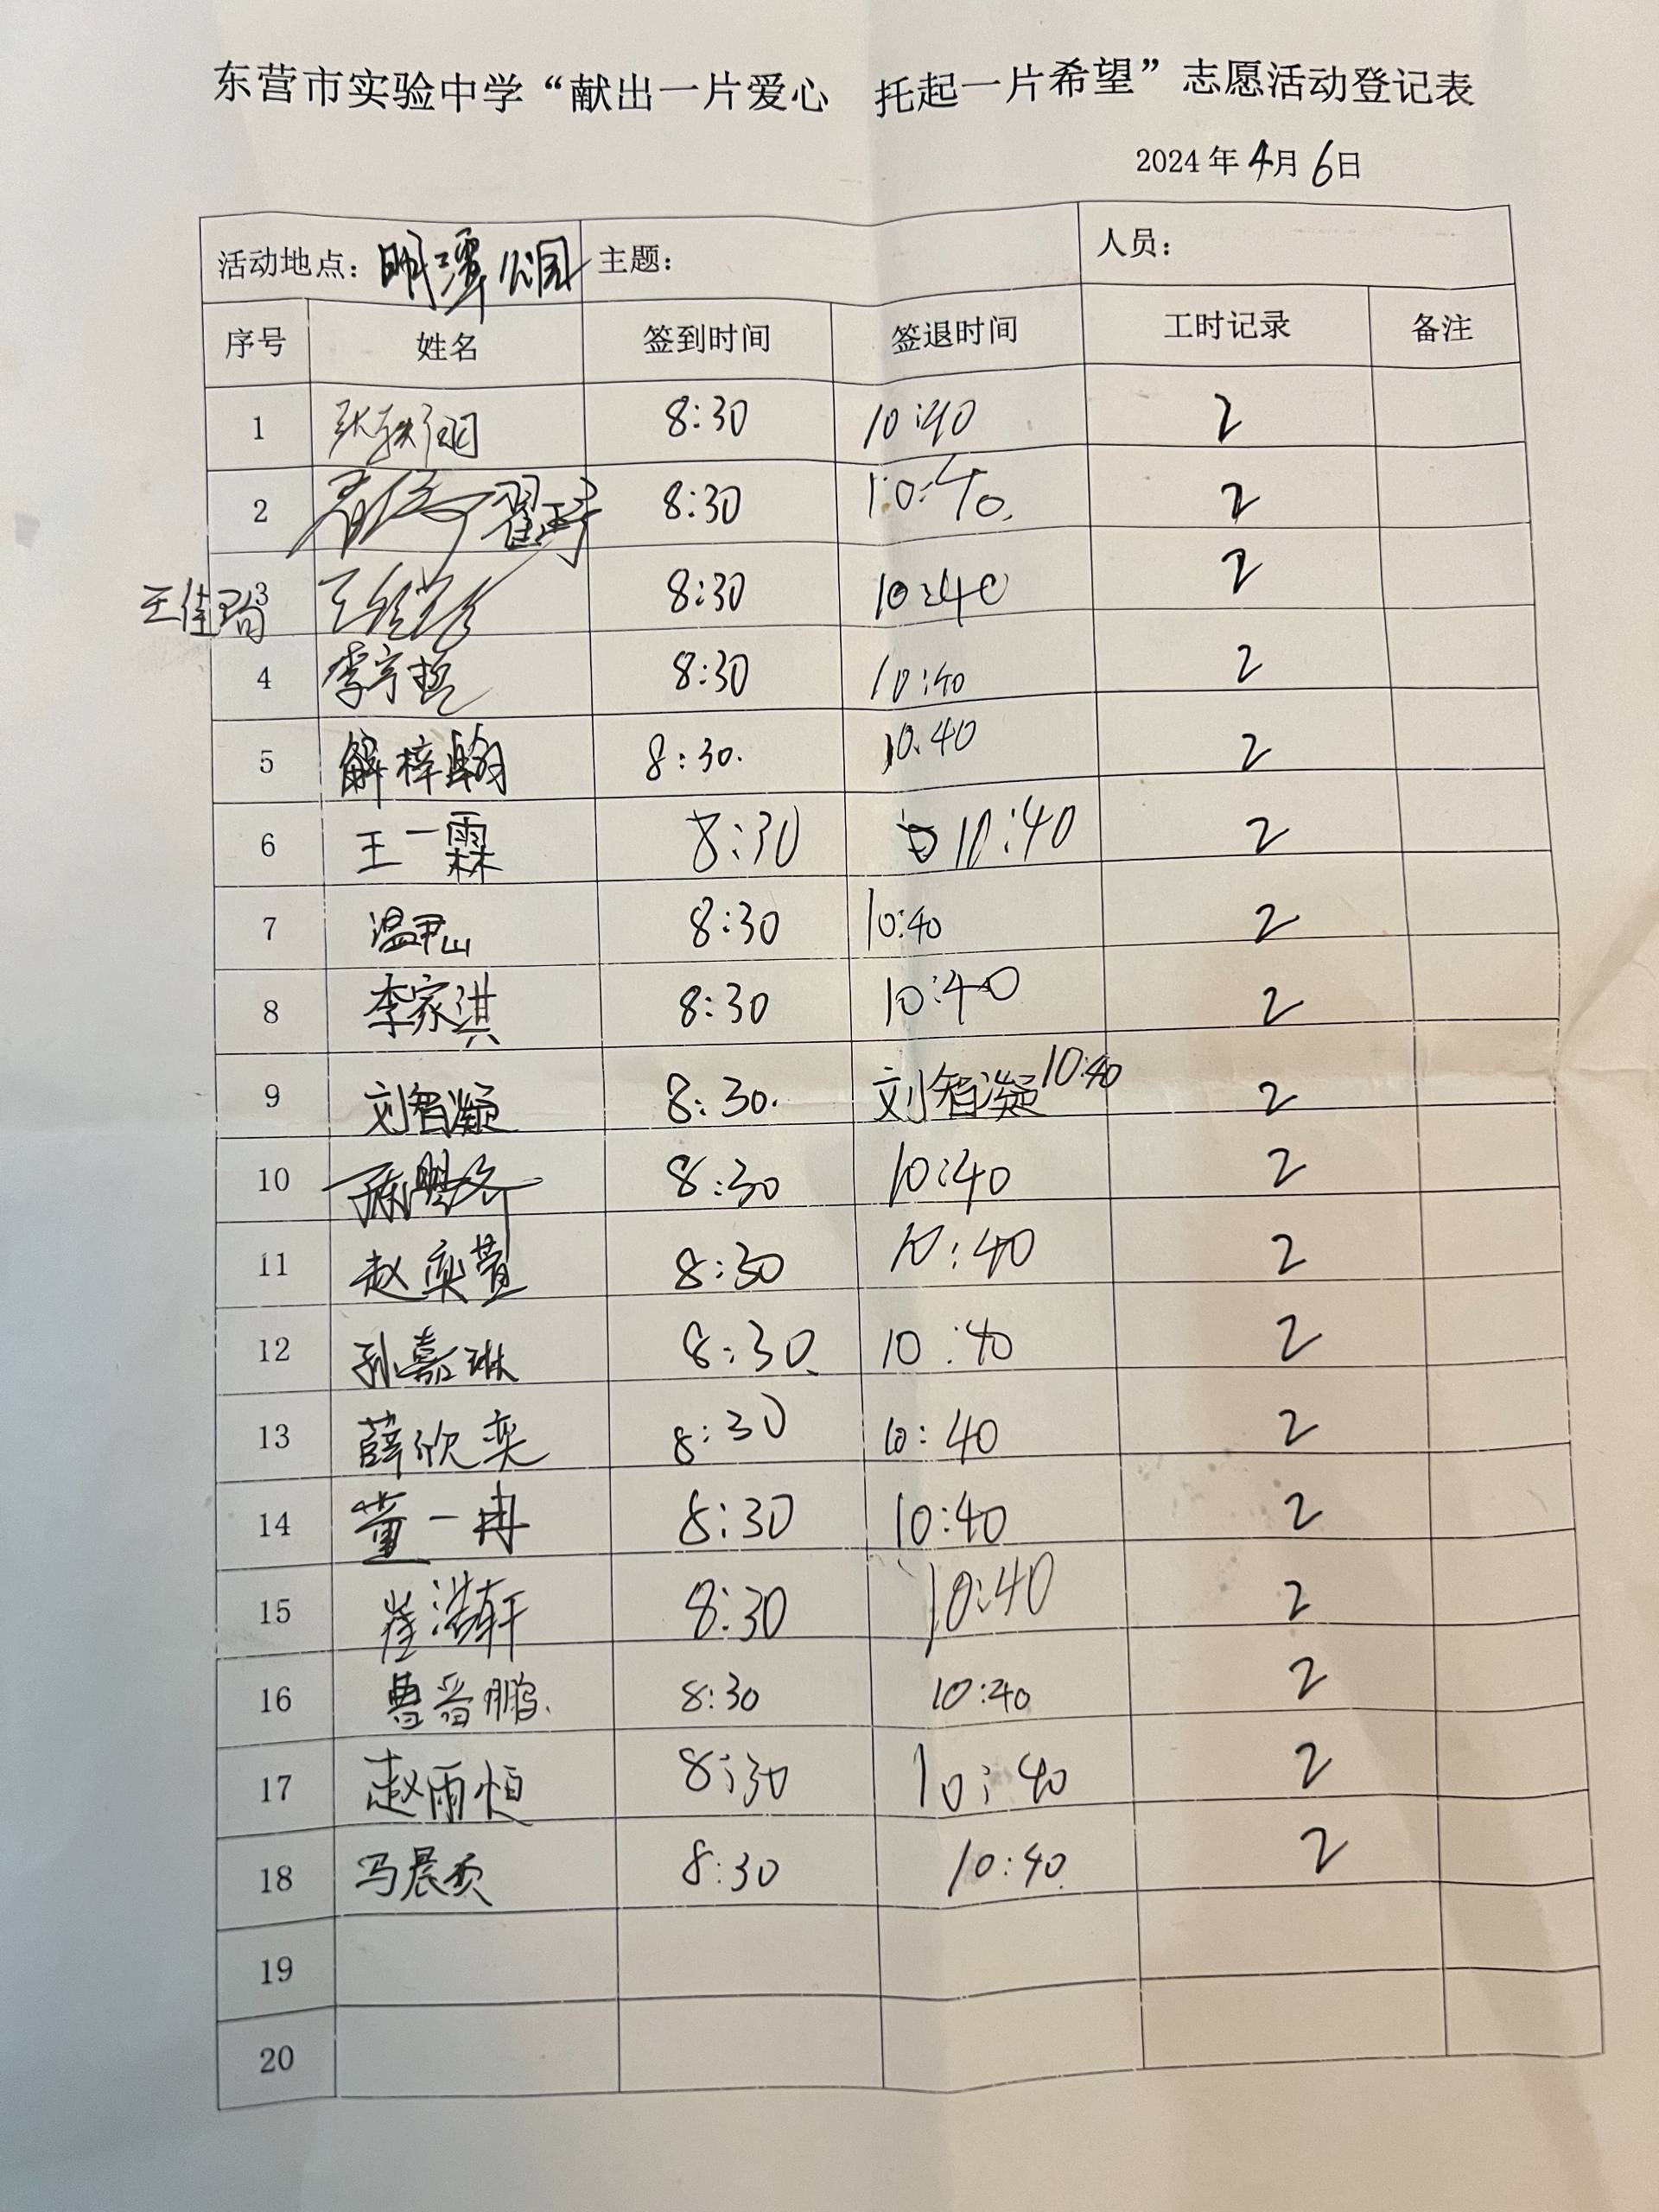 东营市实验中学“献出一片爱心 托起一片希望”志愿活动登记表
2024年4月6日
活动地点：明潭公园 主题： 人员：
序号 姓名 签到时间 签退时间 工时记录 备注
1 张 8:30 10:40 2
2 翟 8:30 10:40. 2
3 王佳 8:30 10:40 2
4 李宇哲 8:30 10:40 2
5 解梓翰 8:30. 10.40 2
6 王一霖 8:30 10:40 2
7 温尹山 8:30 10:40 2
8 李家淇 8:30 10:40 2
9 刘智凝 8:30. 刘智凝 10:40 2
10 8:30 10:40 2
11 赵奕萱 8:30 10:40 2
12 孙嘉琳 8:30. 10:40 2
13 薛欣奕 8:30 10:40 2
14 董一冉 8:30 10:40 2
15 崔浩轩 8:30 10:40 2
16 曹晋鹏. 8:30 10:40 2
17 赵雨恒 8:30 10:40 2
18 马晨 8:30 10:40 2
19
20